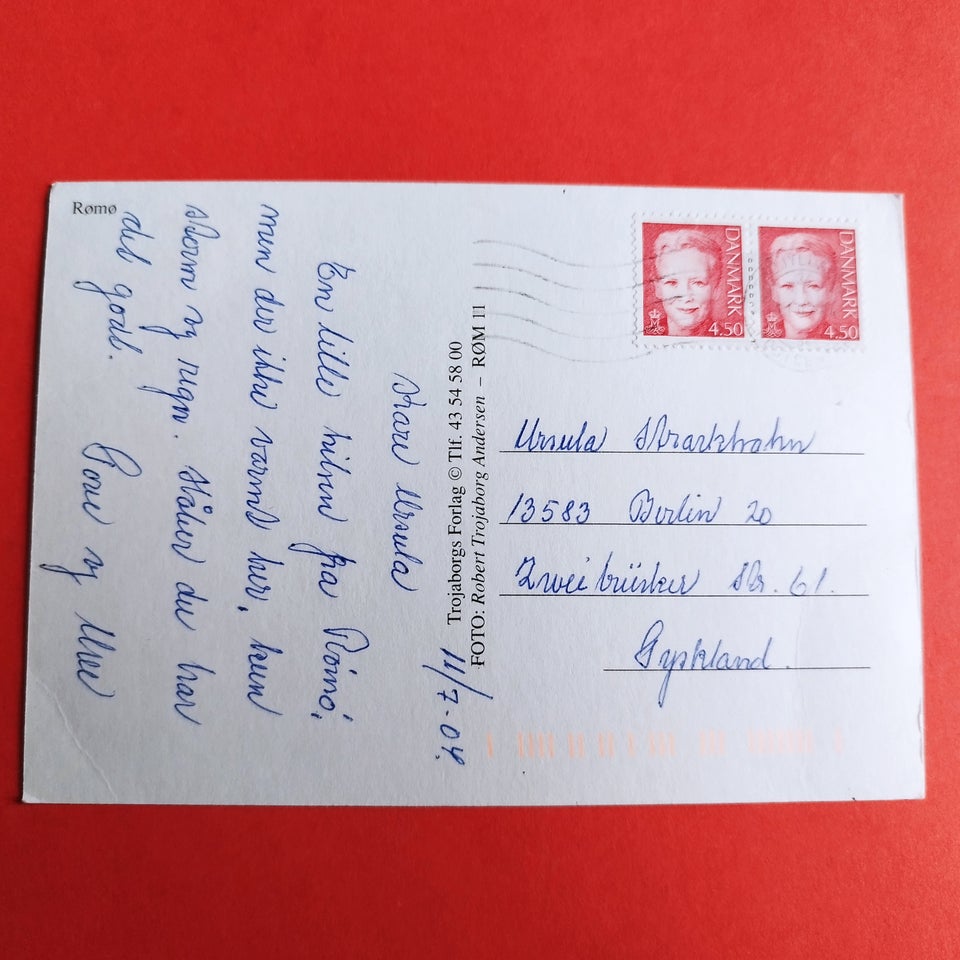 Rømø
11/7-04.
Kære Ursula
En lille hilsen fra Römö,
men der ikke varmt her, kun
storm og regn. Håber du har
det godt.
og
Trojaborgs Forlag © Tlf. 43 54 58 00
FOTO: Robert Trojaborg Andersen – RØM 11
DANMARK
4.50
DANMARK
4.50
Ursula
13583 Berlin 20
Zweibrücker Str. 61.
Tyskland.